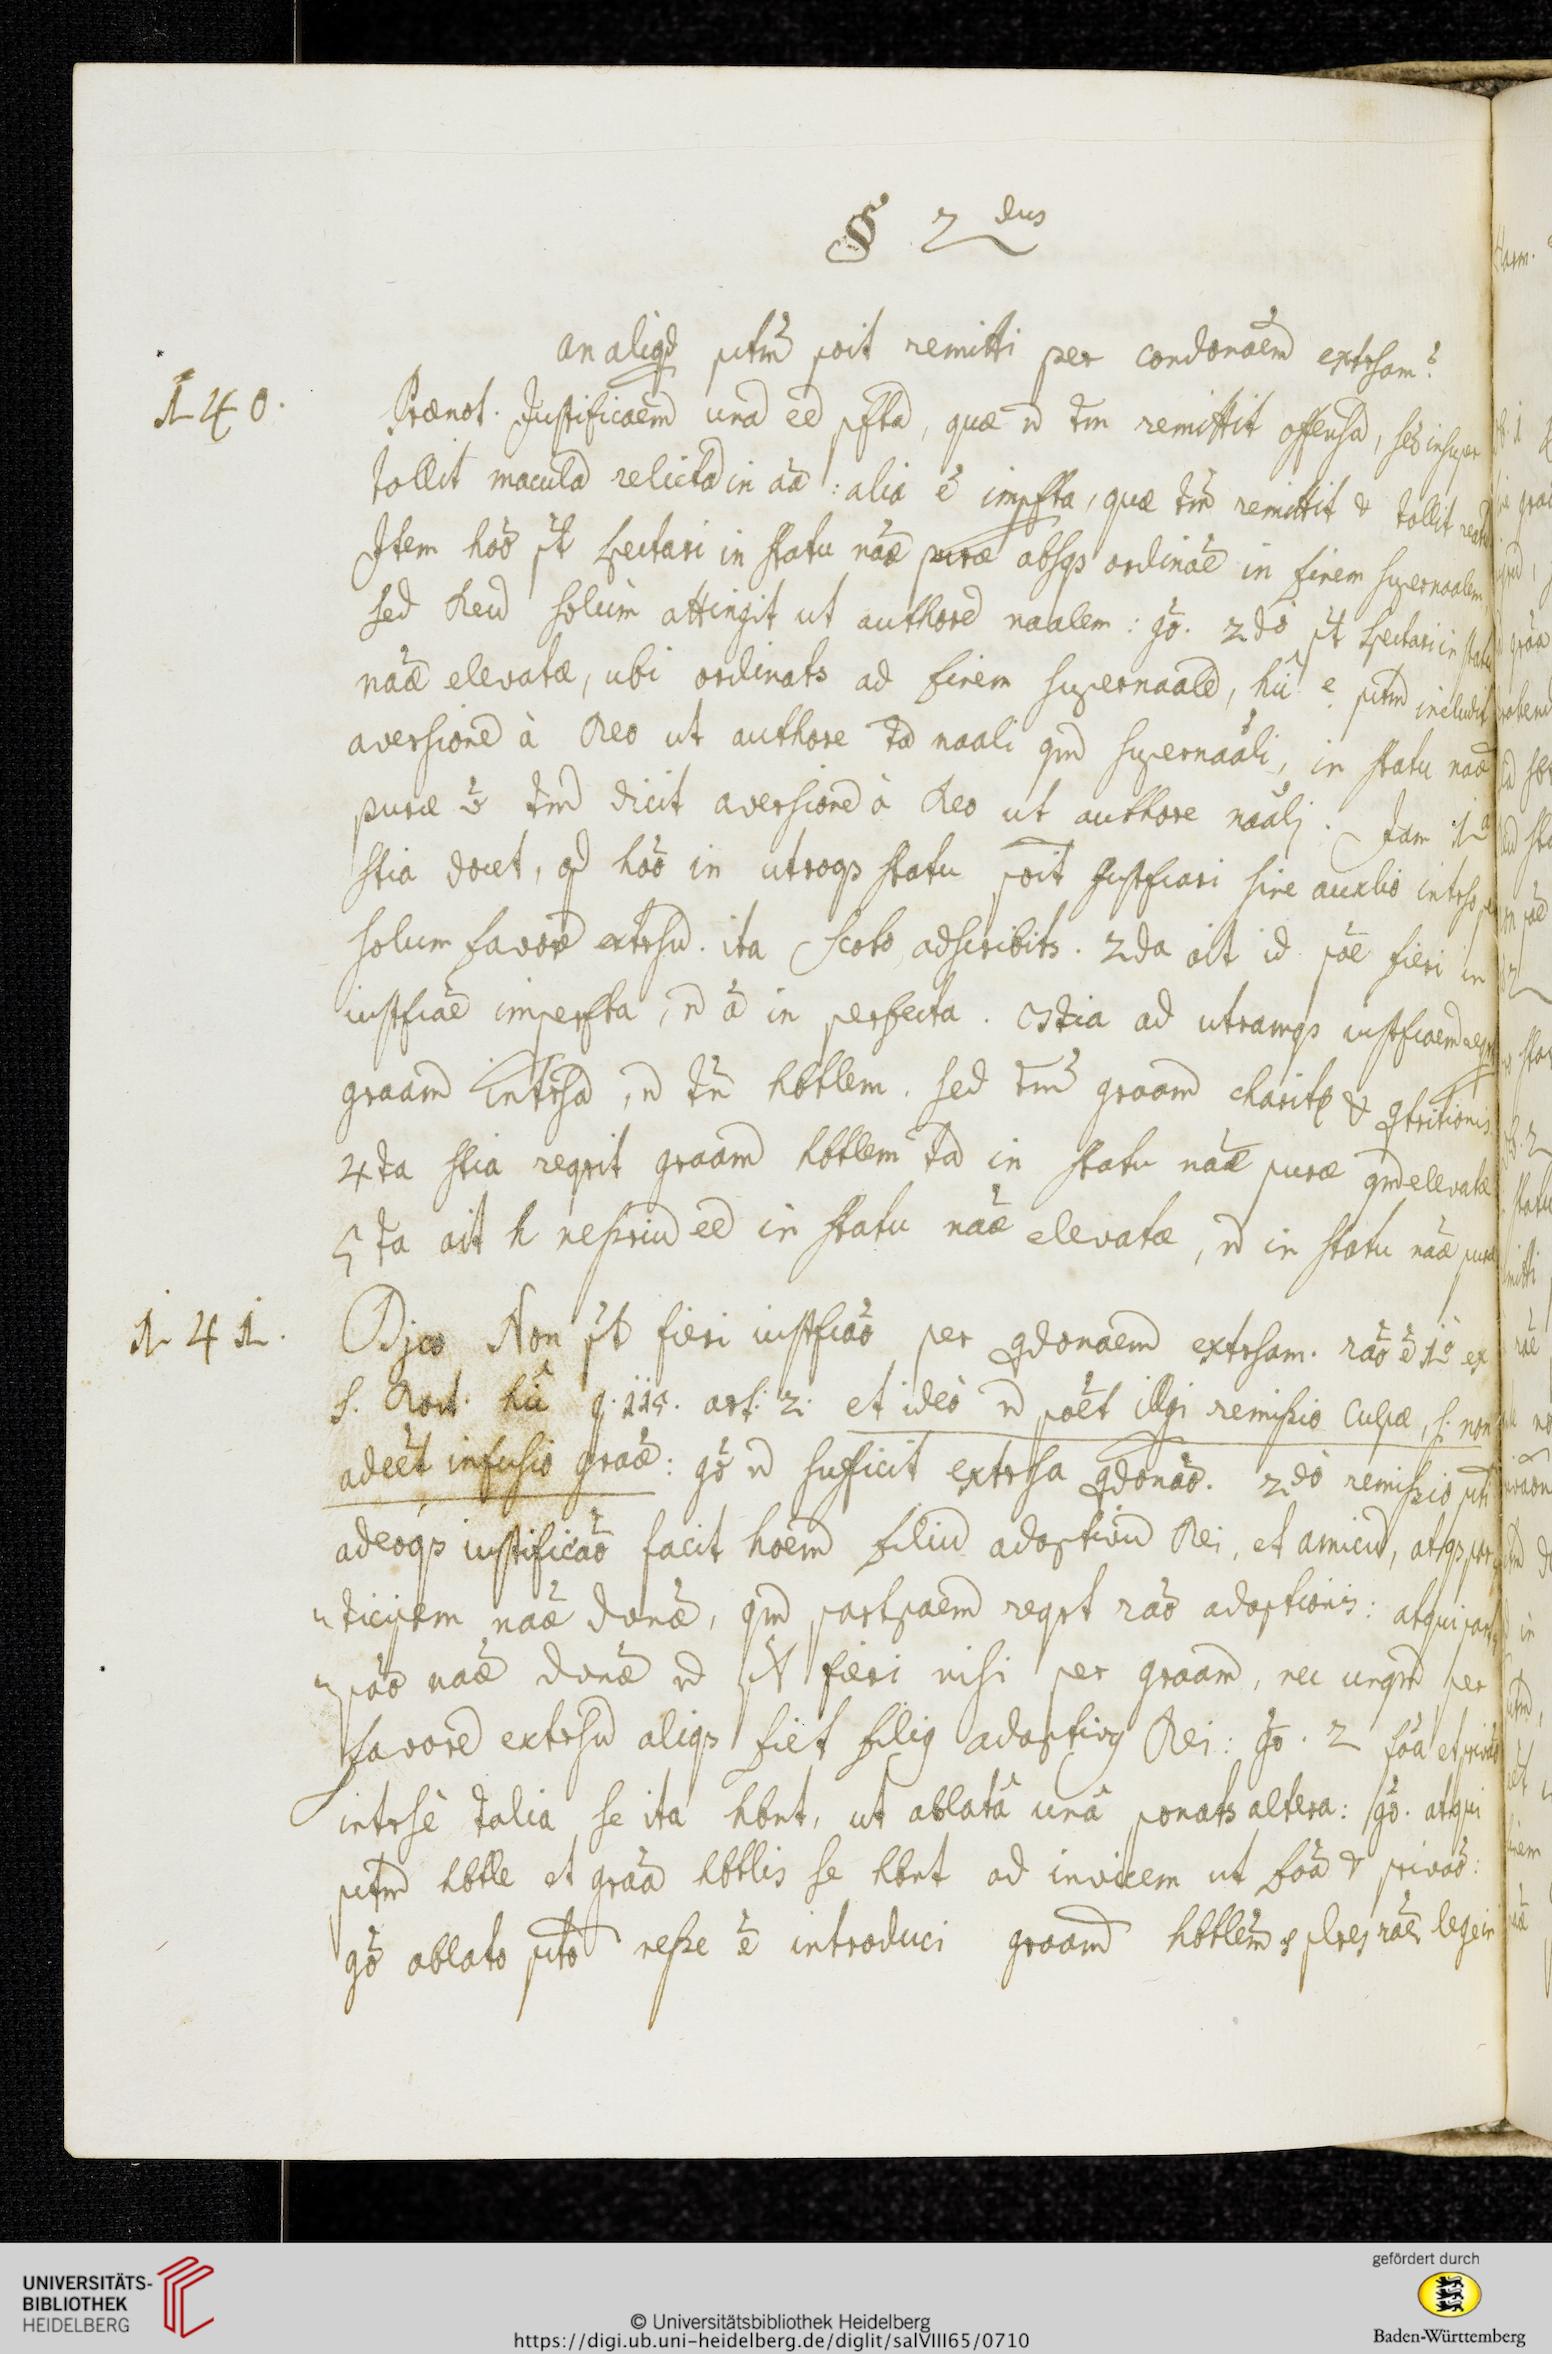 § 2dus
an aliqd pctm̃ poit remitti per condonaẽm extrsam?
140. Prænot. Justificaẽm una eẽ pftã, quæ ñ tm remittit offensã, sed insuper
tollit maculã relictã in aã: alia ẽ impfta, quæ tm̃ remittit & tollit reatũ
Item hoõ pt̃ spectari in statu naæ̃ puræ absqs ordinaẽ in finem supernaalem,
sed Deũ solùm attingit ut authorẽ naalem: gõ. 2dõ pt̃ spectari in statu
naæ̃ elevatæ, ubi ordinats ad finem supernaalẽ, hic e. pctm̃ includit
aversionẽ à Deo ut authore tã naali qm̃ supernaali, in statu naæ̃
puræ ṽ tm̃ dicit aversionẽ à Deo ut authore naali. Jam 1a
stia docet, qd hoõ in utroqs statu poit justfiari sine auxlio intrso p
solum favorẽ extrsũ. ita Scoto adscribits. 2da ait id poẽ fieri in
iustfiaẽ imperfta, ñ ã in perfecta. 3tia ad utramqs iustfiaẽm reqrit
graam̃ intrsã, ñ tm̃ hbtlem. sed tm̃ graam̃ charitis & contritionis
4ta stia reqrit graam̃ hbtlem tã in statu naæ̃ puræ qm̃ elevatæ
5ta ait h nessriũ eẽ in statu naæ̃ elevatæ, ñ in statu naæ̃ puræ
141. Dico Non pt̃ fieri iustfiaõ per condonaẽm extrsam. raõ ẽ 1õ ex
S. Doct. hic q. 113. art: 2: et ideò ñ poẽt illgi remissio culpæ, s. non
adeẽt infusio graæ̃: gõ ñ sufficit extrsa condonaõ. 2dò remissio pcti
adeoqs iustificaõ facit hoẽm filiũ adoptivũ Dei, et amicũ, atqs par
ticipem naæ̃ divinæ̃, qm̃ partpaẽm reqrt raõ adoptionis: atqui partci
paõ naæ̃ divinæ̃ ñ pt fieri nisi per graam̃, nec unqm̃ per
favorẽ extrsũ aliqs fiet filius adoptivus Dei: gõ. 2 foa et privaõ
intrsè talia se ita hbnt, ut ablatâ unâ ponats altera: gõ. atqui
pctm̃ hbtle et graã hbtlis se hbnt ad invicem ut foã & privaõ:
gõ ablato pctõ nesse ẽ introduci graam̃ hbtlem̃ plres raẽs lege in
UNIVERSITÄTS-
BIBLIOTHEK
HEIDELBERG
© Universitätsbibliothek Heidelberg
https://digi.ub.uni-heidelberg.de/diglit/salVIII65/0710
gefördert durch
Baden-Württemberg